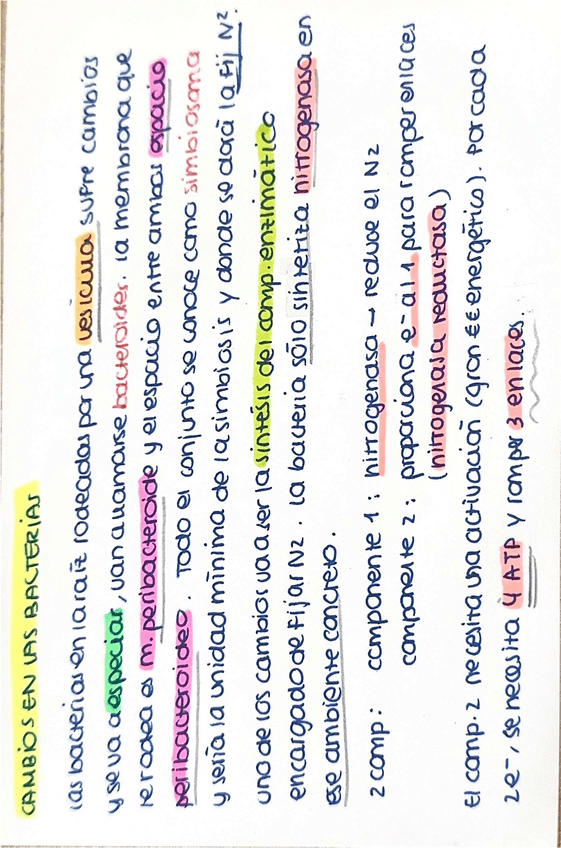 CAMBIOS EN LAS BACTERIAS
Las bacterias en la raíz rodeadas por una vesícula sufre cambios
y se va a especiar, van a llamarse bacteroides. La membrana que
le rodea es m. peribacteroide y el espacio entre ambas espacio
peribacteroideo. Todo el conjunto se conoce como simbiosoma
y sería la unidad mínima de la simbiosis y donde se dará la fij N2.
Uno de los cambios va a ser la síntesis del comp. enzimático
encargado de fijar N2. La bacteria sólo sintetiza nitrogenasa en
ese ambiente concreto.
2 comp: componente 1: nitrogenasa → reduce el N2
componente 2: proporciona e- al 1 para romper enlaces
(nitrogenasa reductasa)
El comp. 2 necesita una activación (gran €€ energético). Por cada
2e-, se necesita 4 ATP y romper 3 enlaces.